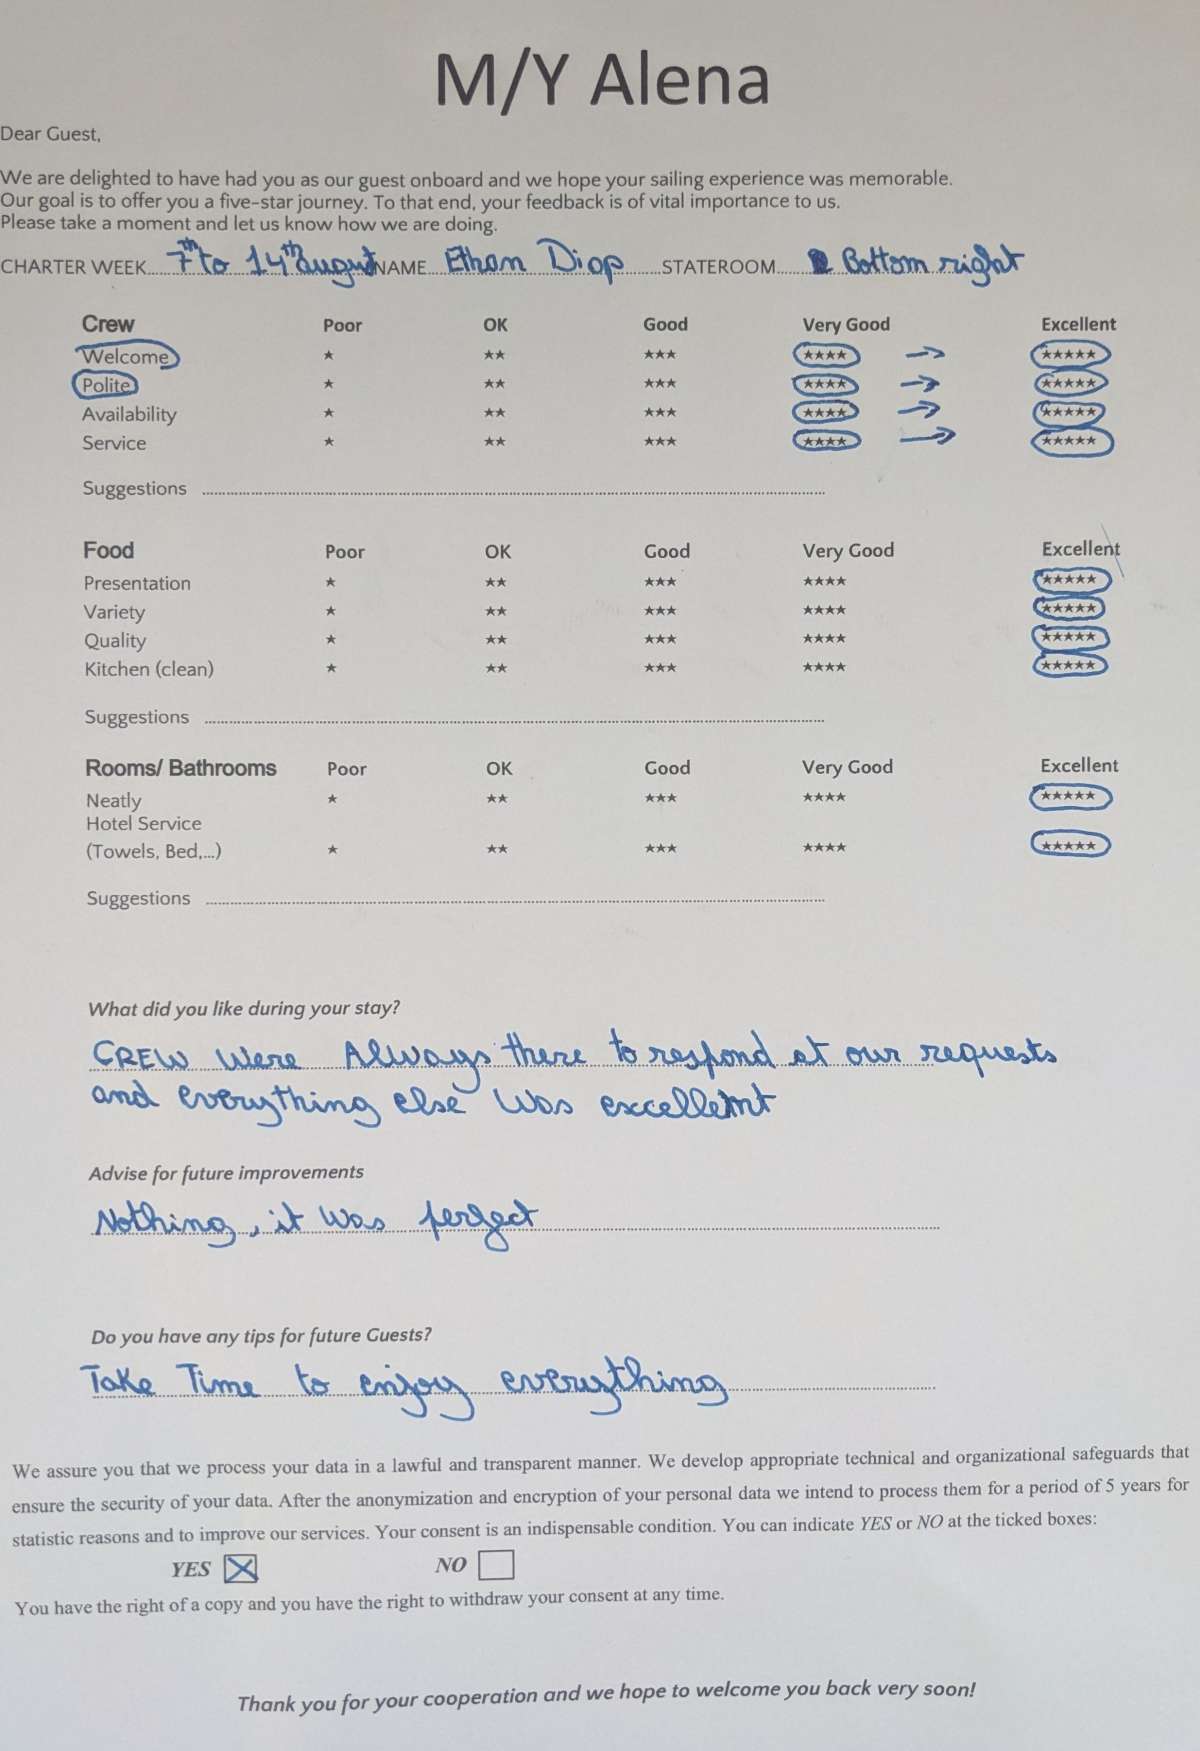 M/Y Alena
Dear Guest,
We are delighted to have had you as our guest onboard and we hope your sailing experience was memorable.
Our goal is to offer you a five-star journey. To that end, your feedback is of vital importance to us.
Please take a moment and let us know how we are doing.
CHARTER WEEK 7th to 14th august NAME Ethan Diop STATEROOM Bottom right
Crew Poor OK Good Very Good Excellent
Welcome ★ ★★ ★★★ ★★★★ → ★★★★★
Polite ★ ★★ ★★★ ★★★★ → ★★★★★
Availability ★ ★★ ★★★ ★★★★ → ★★★★★
Service ★ ★★ ★★★ ★★★★ → ★★★★★
Suggestions
Food Poor OK Good Very Good Excellent
Presentation ★ ★★ ★★★ ★★★★ ★★★★★
Variety ★ ★★ ★★★ ★★★★ ★★★★★
Quality ★ ★★ ★★★ ★★★★ ★★★★★
Kitchen (clean) ★ ★★ ★★★ ★★★★ ★★★★★
Suggestions
Rooms/ Bathrooms Poor OK Good Very Good Excellent
Neatly ★ ★★ ★★★ ★★★★ ★★★★★
Hotel Service
(Towels, Bed,...) ★ ★★ ★★★ ★★★★ ★★★★★
Suggestions
What did you like during your stay?
CREW Were Always there to respond at our requests
and everything else Was excellent
Advise for future improvements
Nothing, it Was perfect
Do you have any tips for future Guests?
Take Time to enjoy everything
We assure you that we process your data in a lawful and transparent manner. We develop appropriate technical and organizational safeguards that
ensure the security of your data. After the anonymization and encryption of your personal data we intend to process them for a period of 5 years for
statistic reasons and to improve our services. Your consent is an indispensable condition. You can indicate YES or NO at the ticked boxes:
YES ☒ NO ☐
You have the right of a copy and you have the right to withdraw your consent at any time.
Thank you for your cooperation and we hope to welcome you back very soon!